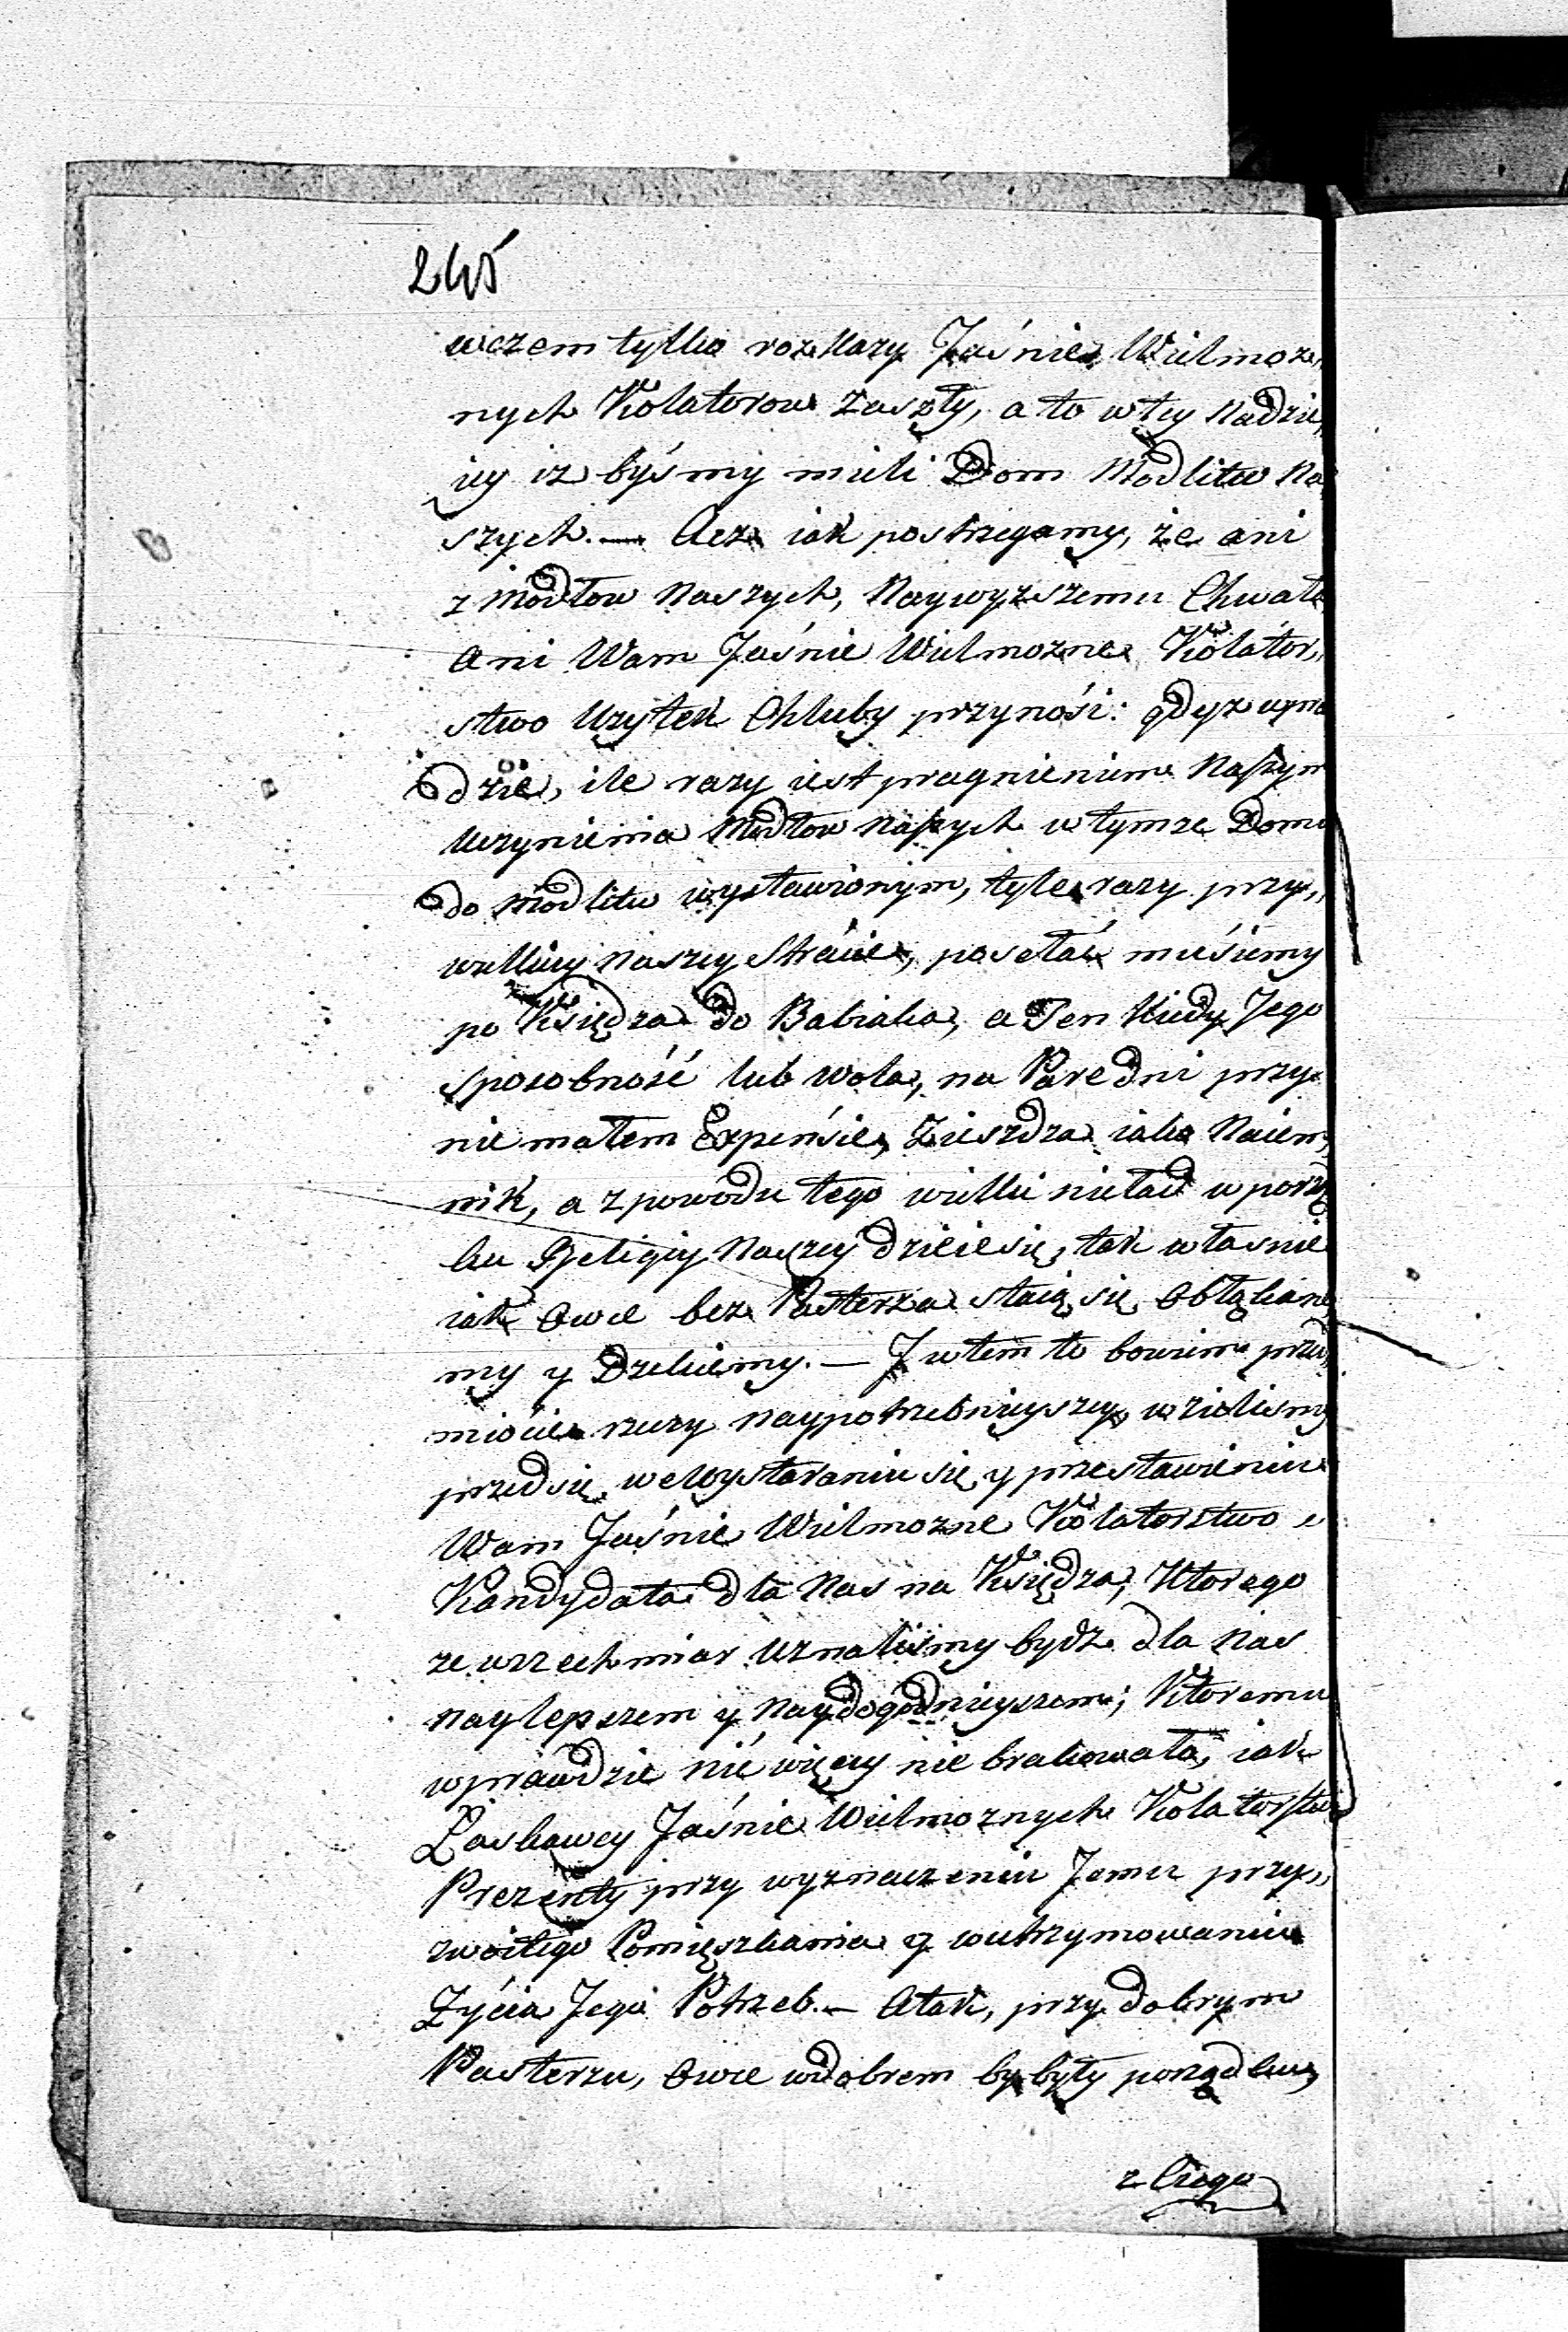 245
wczem tylko rozkazy Jaśnie Wielmoż„
nych Kolatorow zaszły, a to w tey Nadzie„
iey iz byśmy mieli Dom Modlitw Na
szych. — Acz iak postrzegamy, że ani
z Modłow Naszych, Naywyzszemu Chwała
ani Wam Jaśnie Wielmozne Kolator„
stwo Uzytek Chluby przynosi: gdyz wpra
dzie, ile razy iest pragnieniem Naszym
Uczynienia Modłow Naszych w tymze Domu
do Modlitw wystawionym, tyle razy przy„
wielkiey Naszey Stracie, posełać musiemy
po Księdza do Babiaka, a Ten kiedy Jego
sposobność lub wola, na Pare dni przy
nie małem Expensie, Zieszdza iako Naiem„
nik, a z powodu tego wielki nieład w porzą
ku Religiy Naszey dzieie się, tak własnie
iak Owce bez Pasterza staią się Obłąkane
my y Dzikiemy. — J w tem to bowiem przed
miocie rzeczy Naypotrzebnieyszey, wzielismy
przedsię, we Wystaraniu się y przestawieniu
Wam Jaśnie Wielmozne Kolatorstwo
Kandydata dla Nas na Księdza, Ktorego
ze wszech miar Uznalismy bydz dla Nas
Naylepszem y Naydogodnieyszem; Ktoremu
wprawdzie nic więcey nie brakowało, iak
Łaskawey Jaśnie Wielmoznych Kolatorstwa
Prezenty przy wyznaczeniu Jemu przy„
zwoitego Pomięszkania y wutrzymowaniu
Życia Jego Potrzeb. — Atak, przy dobrym
Pasterzu, Owce wdobrem by były porządku,
z Czego